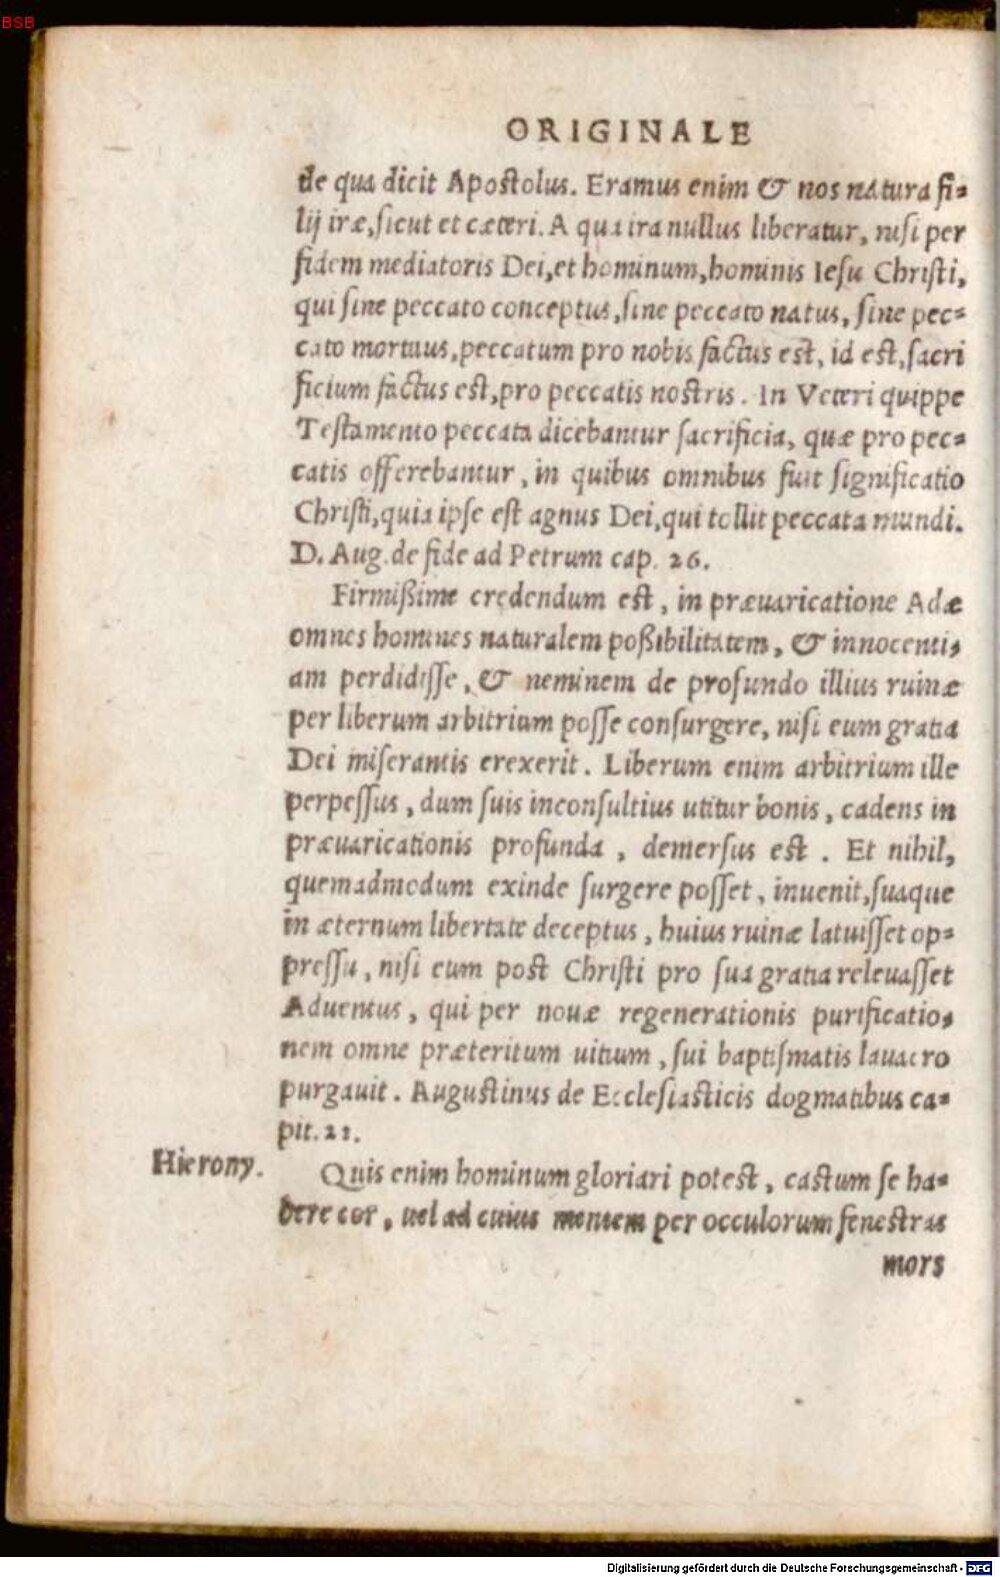 BSB
ORIGINALE
de qua dicit Apostolus. Eramus enim & nos natura fi-
lij iræ, sicut et cæteri. A qua ira nullus liberatur, nisi per
fidem mediatoris Dei, et hominum, hominis Iesu Christi,
qui sine peccato conceptus, sine peccato natus, sine pec-
cato mortuus, peccatum pro nobis factus est, id est, sacri
ficium factus est, pro peccatis nostris. In Veteri quippe
Testamento peccata dicebantur sacrificia, quæ pro pec-
catis offerebantur, in quibus omnibus fuit significatio
Christi, quia ipse est agnus Dei, qui tollit peccata mundi.
D. Aug. de fide ad Petrum cap. 26.
Firmißime credendum est, in præuaricatione Adæ
omnes homines naturalem poßibilitatem, & innocenti-
am perdidisse, & neminem de profundo illius ruinæ
per liberum arbitrium posse consurgere, nisi eum gratia
Dei miserantis erexerit. Liberum enim arbitrium ille
perpessus, dum suis inconsultius utitur bonis, cadens in
præuaricationis profunda, demersus est. Et nihil,
quemadmodum exinde surgere posset, inuenit, suaque
in æternum libertate deceptus, huius ruinæ latuisset op-
pressu, nisi eum post Christi pro sua gratia releuasset
Aduentus, qui per nouæ regenerationis purificatio-
nem omne præteritum uitium, sui baptismatis lauacro
purgauit. Augustinus de Ecclesiasticis dogmatibus ca-
pit. 21.
Hierony.
Quis enim hominum gloriari potest, castum se ha-
bere cor, uel ad cuius mentem per occulorum fenestras
mors
Digitalisierung gefördert durch die Deutsche Forschungsgemeinschaft - DFG